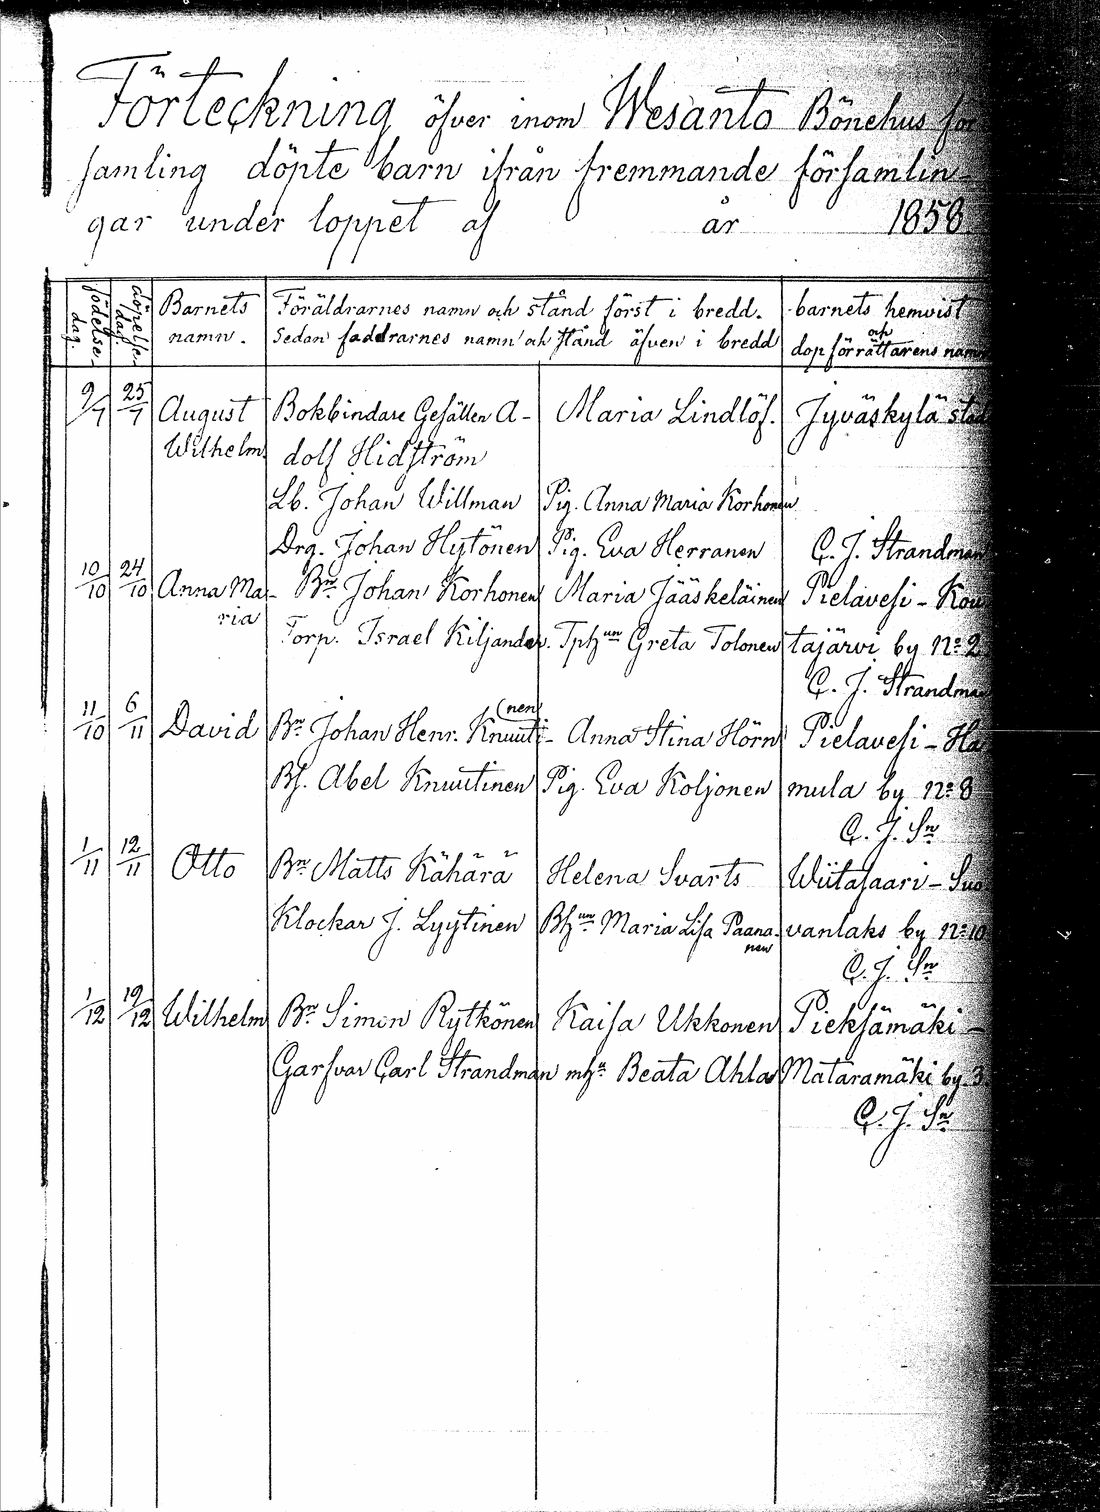 Förteckning öfver inom Wesanto Bönehus för
samling döpte barn ifrån fremmande församlin-
gar under loppet af år 1858.
födelse dag.
döpelse dag.
Barnets namn.
Föräldrarnes namn och stånd först i bredd.
Sedan faddrarnes namn och stånd äfven i bredd
barnets hemvist
och
dopförrättarens namn
9/7 25/7 August Bokbindare Gesällen A- Maria Lindlöf. Jyväskylä stad
Wilhelm dolf Hidström
Lb. Johan Willman Pig. Anna Maria Korhonen
Drg. Johan Hytönen Pig. Eva Herranen C. J. Strandman
10/10 24/10 Anna Ma- Bn Johan Korhonen Maria Jääskeläinen Pielavesi -
ria Torp. Israel Kiljander. Tphun Greta Tolonen tajärvi by No 2
C. J. Strandman
11/10 6/11 David Bn Johan Henr. Knuuti- (nen Anna Stina Hörn Pielavesi - Ha
Bf. Abel Knuutinen Pig. Eva Koljonen mula by No 8
C. J. Sn
1/11 12/11 Otto Bn Matts Kähärä Helena Svarts Wiitasaari - Suo
Klockar J. Lyytinen Bhun Maria Lisa Paana- nen vanlaks by No 10
C. J. Sn
1/12 19/12 Wilhelm Bn Simon Rytkönen Kaisa Ukkonen Pieksämäki -
Garfvar Carl Strandman mhn Beata Ahla Mataramäki by 3.
C. J. Sn